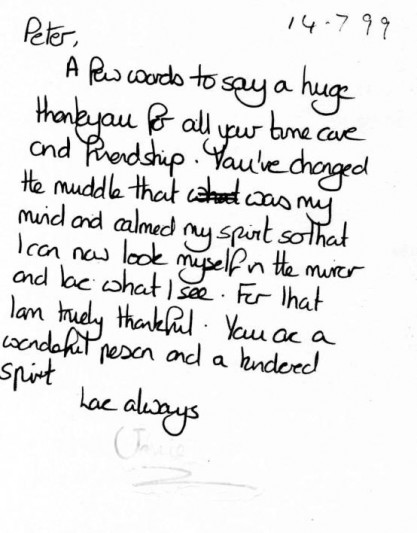 14-7 99
Peter,
A few words to say a huge
thankyou for all your time care
and friendship. You've changed
the muddle that what was my
mind and calmed my spirit so that
I can now look myself in the mirror
and love what I see. For that
I am truely thankful. You are a
wonderful person and a kindered
spirit
Love always